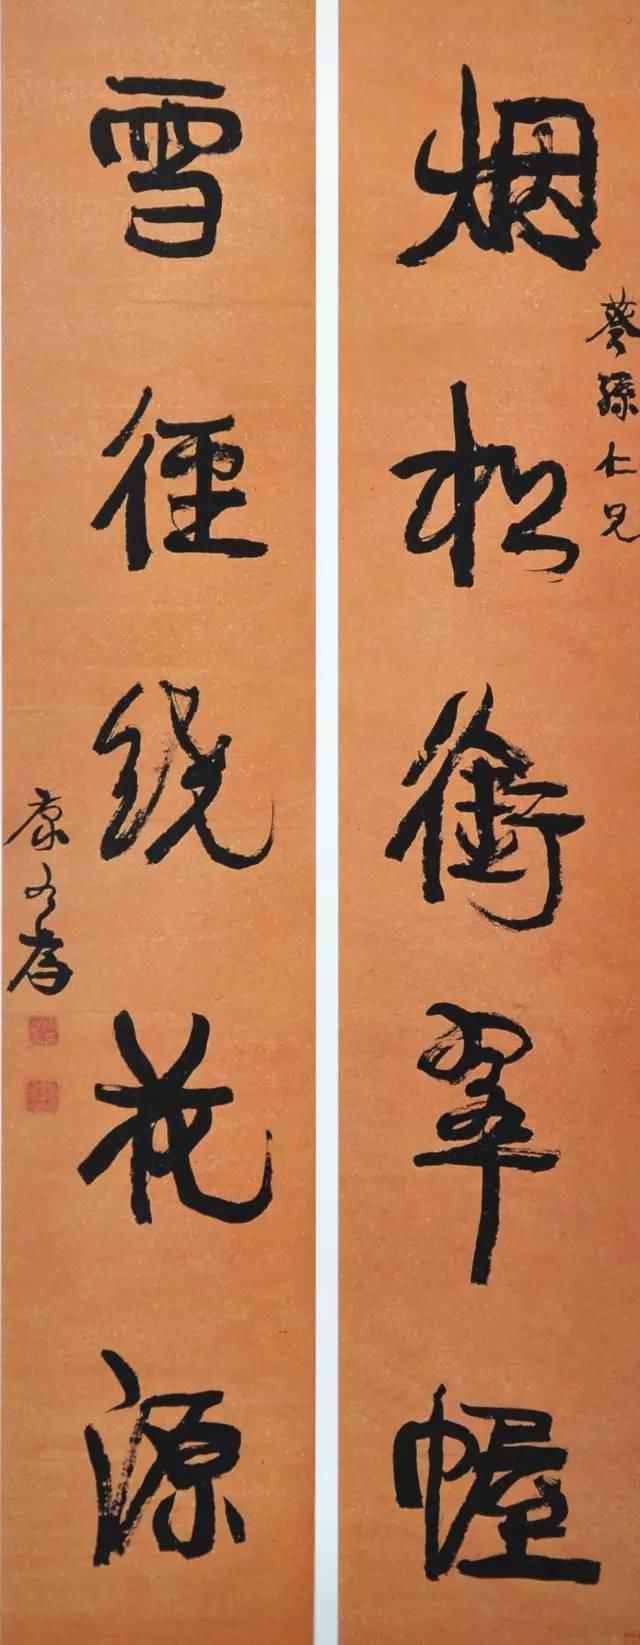 烟松衔翠幄
葵孫仁兄
雪径绕花源
康有為